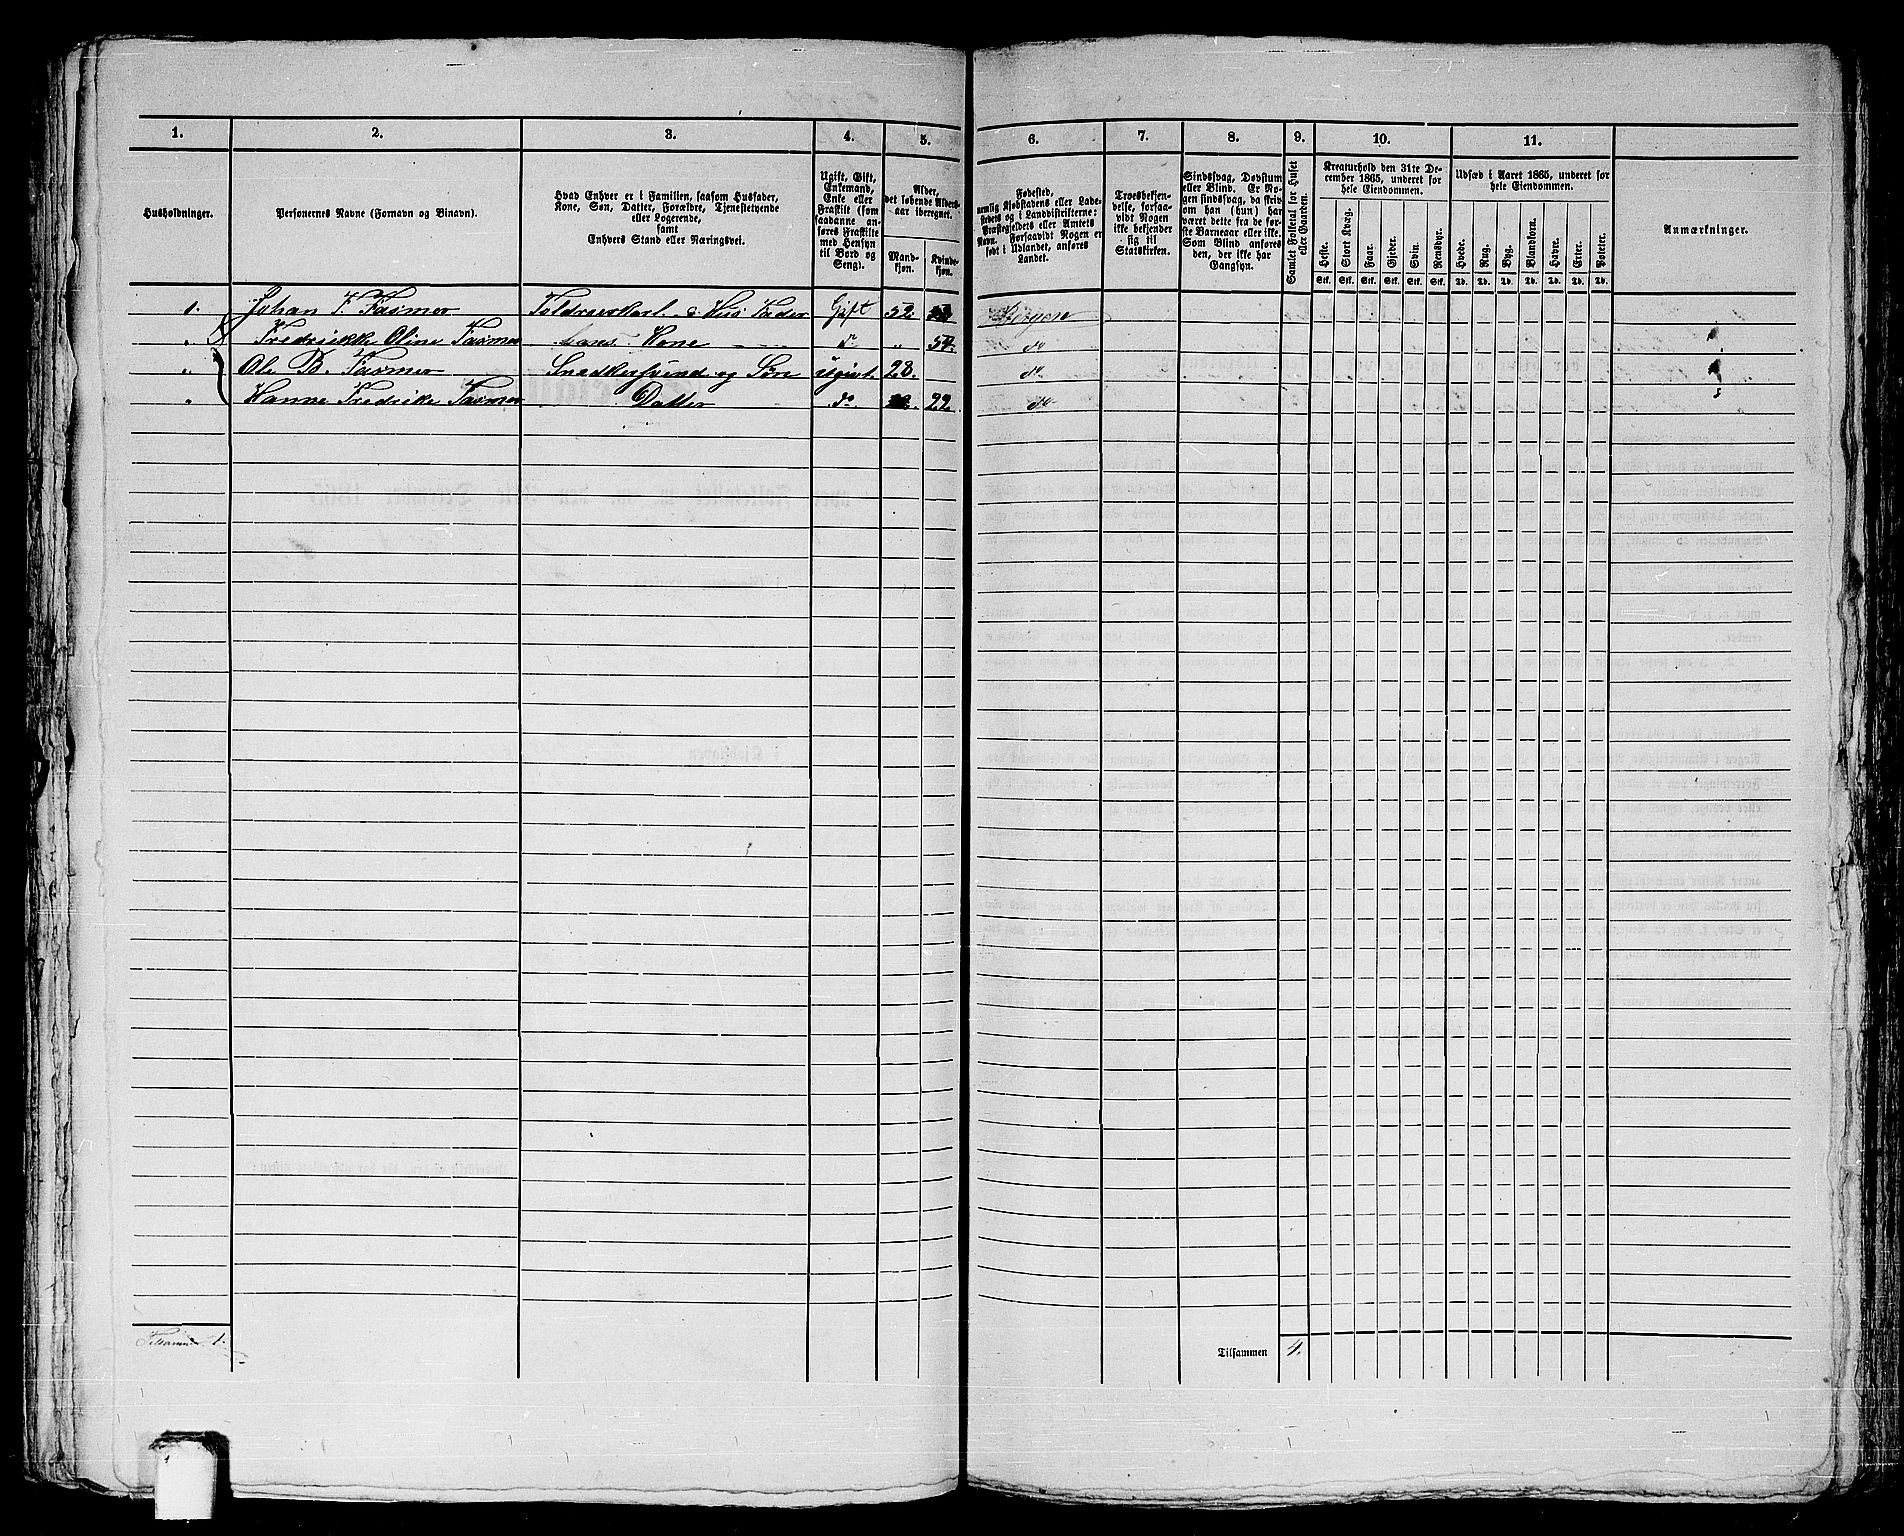 1. 2. 3. 4. 5. 6. 7. 8. 9. 10. 11.
Husholdninger.
Personernes Navne (Fornavn og Binavn).
Hvad Enhver er i Familien, saasom Husfader,
Kone, Søn, Datter, Forældre, Tjenestetyende
eller Logerende,
samt
Enhvers Stand eller Næringsvei.
Ugift, Gift,
Enkemand,
Enke eller
Fraskilt (som
saadanne an-
føres Fraskilte
med Hensyn
til Bord og
Seng).
Alder,
det løbende Alders-
aar iberegnet.
Mand-
kjøn.
Kvinde-
kjøn.
Fødested,
nemlig Kjøbstadens eller Lade-
stedets og i Landdistrikterne:
Præstegjeldets eller Amtets
Navn. Forsaavidt Nogen er
født i Udlandet, anføres
Landet.
Troesbekjen-
delse, forsaa-
vidt Nogen
ikke bekjender
sig til
Statskirken.
Sindssvag, Døvstum
eller Blind. Er No-
gen sindssvag, da skriv
om han (hun) har
været dette fra de før-
ste Barneaar eller ikke.
Som Blind anføres
den, der ikke har
Gangsyn.
Samlet Folketal for Huset
eller Gaarden.
Kreaturhold den 31te De-
cember 1865, underet for
hele Eiendommen.
Heste. Stort Kvæg. Faar. Gjeder. Svin. Rensdyr.
Stk. Stk. Stk. Stk. Stk. Stk.
Udsæd i Aaret 1865, underet for
hele Eiendommen.
Hvede. Rug. Byg. Blandkorn. Havre. Erter. Poteter.
Td. Td. Td. Td. Td. Td. Td.
Anmærkninger.
1. Johan F. Fasmer Toldroerkarl & Hus Fader Gift 52. Bergen
" Fredrikke Oline Fasmer Kone do " 54. do
" Ole B. Fasmer Snedkersvend og Søn ugivt. 28. do
" Hanne Fredrike Fasmer Datter do 22. do
Tilsammen 1. Tilsammen 4.